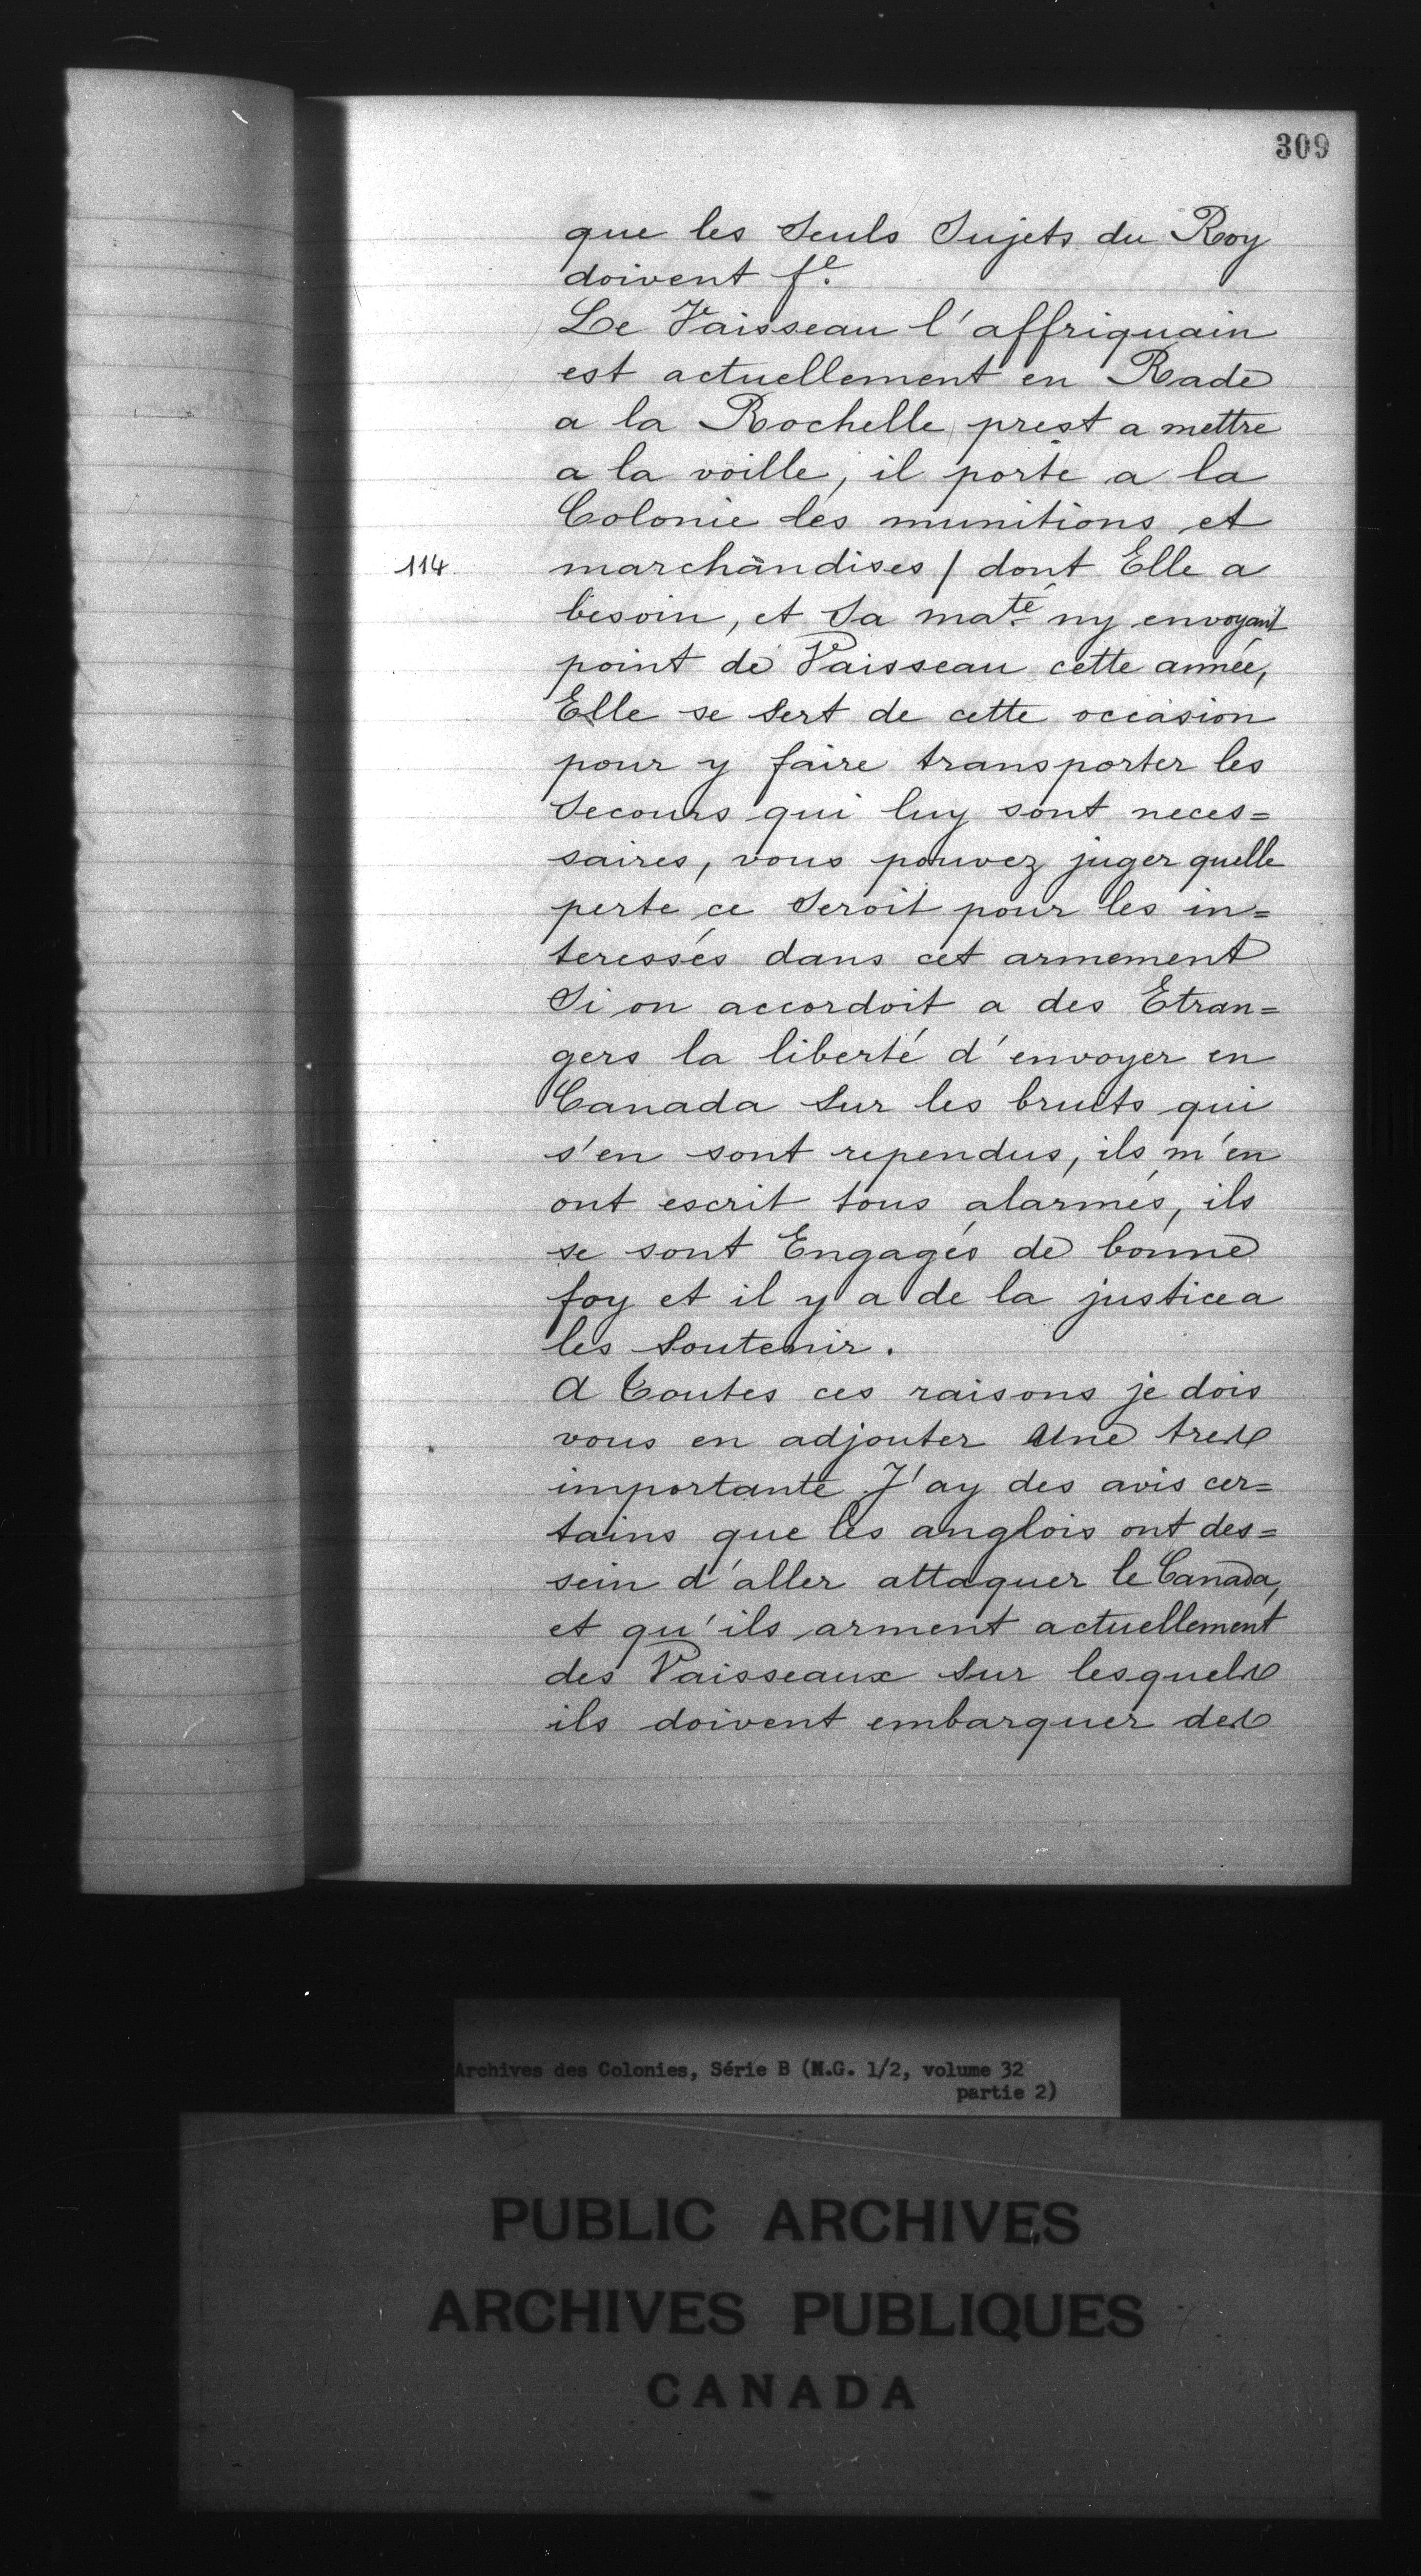 309
que les Seuls Sujets du Roy
doivent f.e
Le Vaisseau l'affriquain
est actuellement en Rade
a la Rochelle prest a mettre
a la voille, il porte a la
Colonie les munitions et
114. marchandises / dont Elle a
besoin, et Sa ma.té ny envoyant
point de Vaisseau cette année,
Elle se sert de cette occasion
pour y faire transporter les
Secours qui luy sont neces=
saires, vous pouvez juger quelle
perte ce Seroit pour les in=
teressés dans cet armement
Si on accordoit a des Etran=
gers la liberté d'envoyer en
Canada Sur les bruits qui
s'en sont rependus, ils m'en
ont escrit tous alarmés, ils
se sont Engagés de bonne
foy et il y a de la justice a
les Soutenir.
A Toutes ces raisons je dois
vous en adjouter Une tres
importante J'ay des avis cer=
tains que les anglois ont des=
sein d'aller attaquer le Canada,
et qu'ils arment actuellement
des Vaisseaux Sur lesquels
ils doivent embarquer des
Archives des Colonies, Série B (M.G. 1/2, volume 32
partie 2)
PUBLIC ARCHIVES
ARCHIVES PUBLIQUES
CANADA